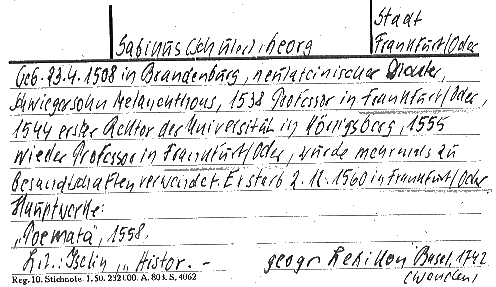 Stadt
Sabinus (Schuler), Georg Frankfurt/Oder
Geb. 23.4.1508 in Brandenburg, neulateinischer Dichter,
Schwiegersohn Melanchthons, 1538 Professor in Frankfurt/Oder,
1544 erster Rektor der Universität in Königsberg, 1555
wieder Professor in Frankfurt/Oder, wurde mehrmals zu
Gesandtschaften verwendet. Er starb 2.12.1560 in Frankfurt/Oder
Hauptwerke:
"Poemata", 1558.
Lit.: Iselin, "Histor. - geogr Lexikon" Basel, 1742
Reg. 10. Stichnote 1. 50. 232 000. A. 80 k S. 4062